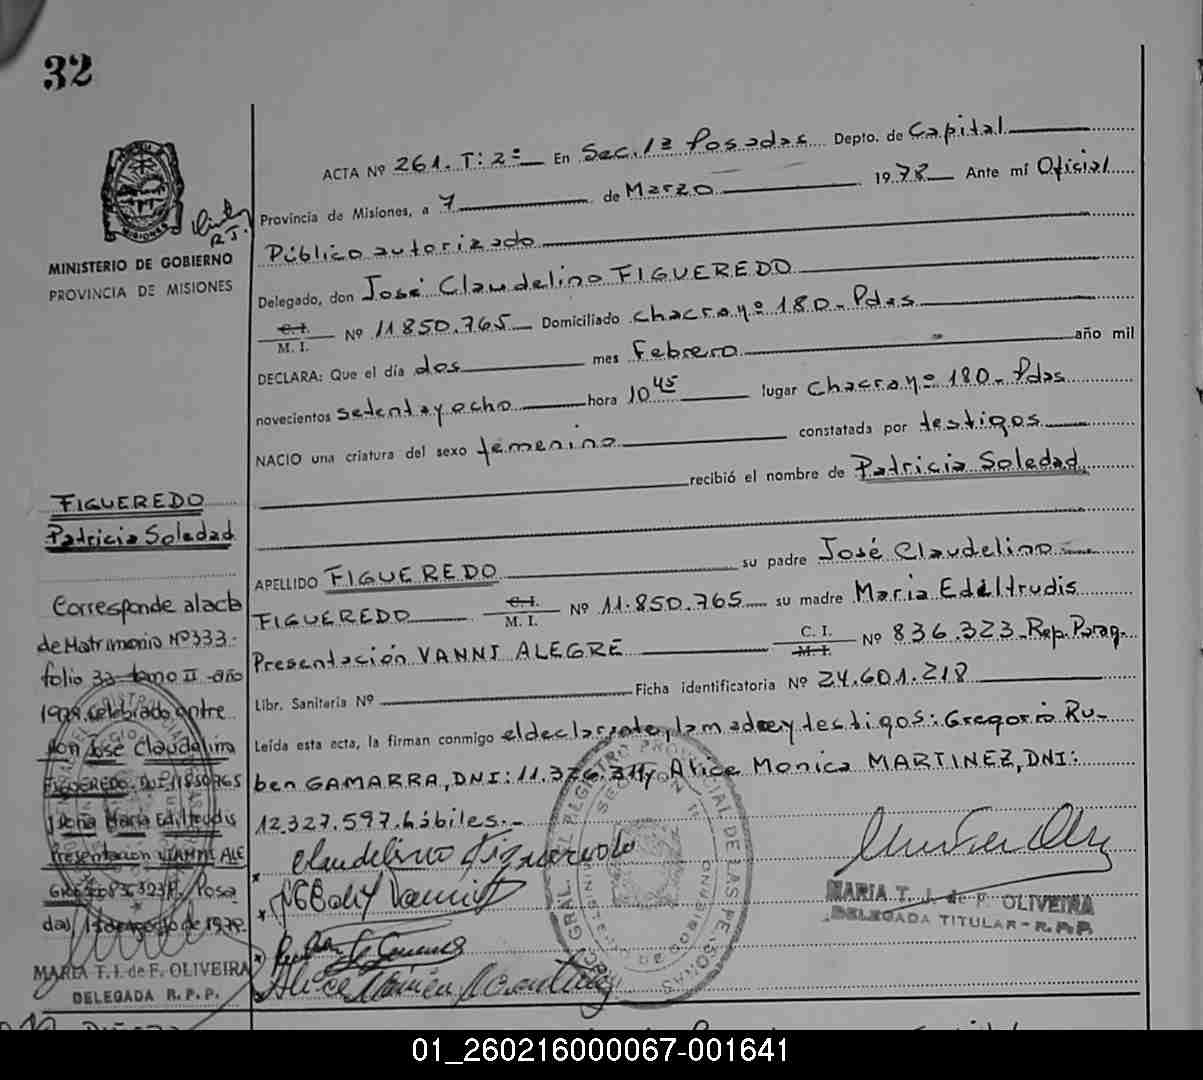 32
MINISTERIO DE GOBIERNO
PROVINCIA DE MISIONES
ACTA Nº 261. T: 2º En Sec. 1ª Posadas Depto. de Capital
Provincia de Misiones, a 7 de Marzo 1978 Ante mí Oficial
Público autorizado
Delegado, don José Claudelino FIGUEREDO
C.I. M. I. Nº 11850.765 Domiciliado chacra nº 180 - Pdas
DECLARA: Que el día dos mes Febrero año mil
novecientos setenta y ocho hora 10 45 lugar chacra nº 180 - Pdas
NACIO una criatura del sexo femenino constatada por testigos
recibió el nombre de Patricia Soledad
APELLIDO FIGUEREDO su padre José Claudelino
FIGUEREDO C.I. M. I. Nº 11.850.765 su madre Maria Ediltrudis
Presentación VANNI ALEGRE C. I. M.I. Nº 836.323 - Rep. Parag.
Libr. Sanitaria Nº Ficha identificatoria Nº 24.601.218
Leída esta acta, la firman conmigo el declarante, la madre y testigos: Gregorio Ru-
ben GAMARRA, DNI: 11.326. y Alice Monica MARTINEZ, DNI:
12.327.597. hábiles.-
Claudelino Figueredo
MARIA T. J. de F. OLIVEIRA
DELEGADA TITULAR - R.P.P.
FIGUEREDO
Patricia Soledad
Corresponde al acta
de Matrimonio Nº 333-
folio 33 tomo II - año
1979 celebrado entre
don José Claudelino
FIGUEREDO DNI 11850765
y doña Maria Ediltrudis
Presentacion VANNI ALE
GRE 836323 Posa
das, de agosto de 1979.
MARIA T. J. de F. OLIVEIRA
DELEGADA R. P. P.
01_260216000067-001641